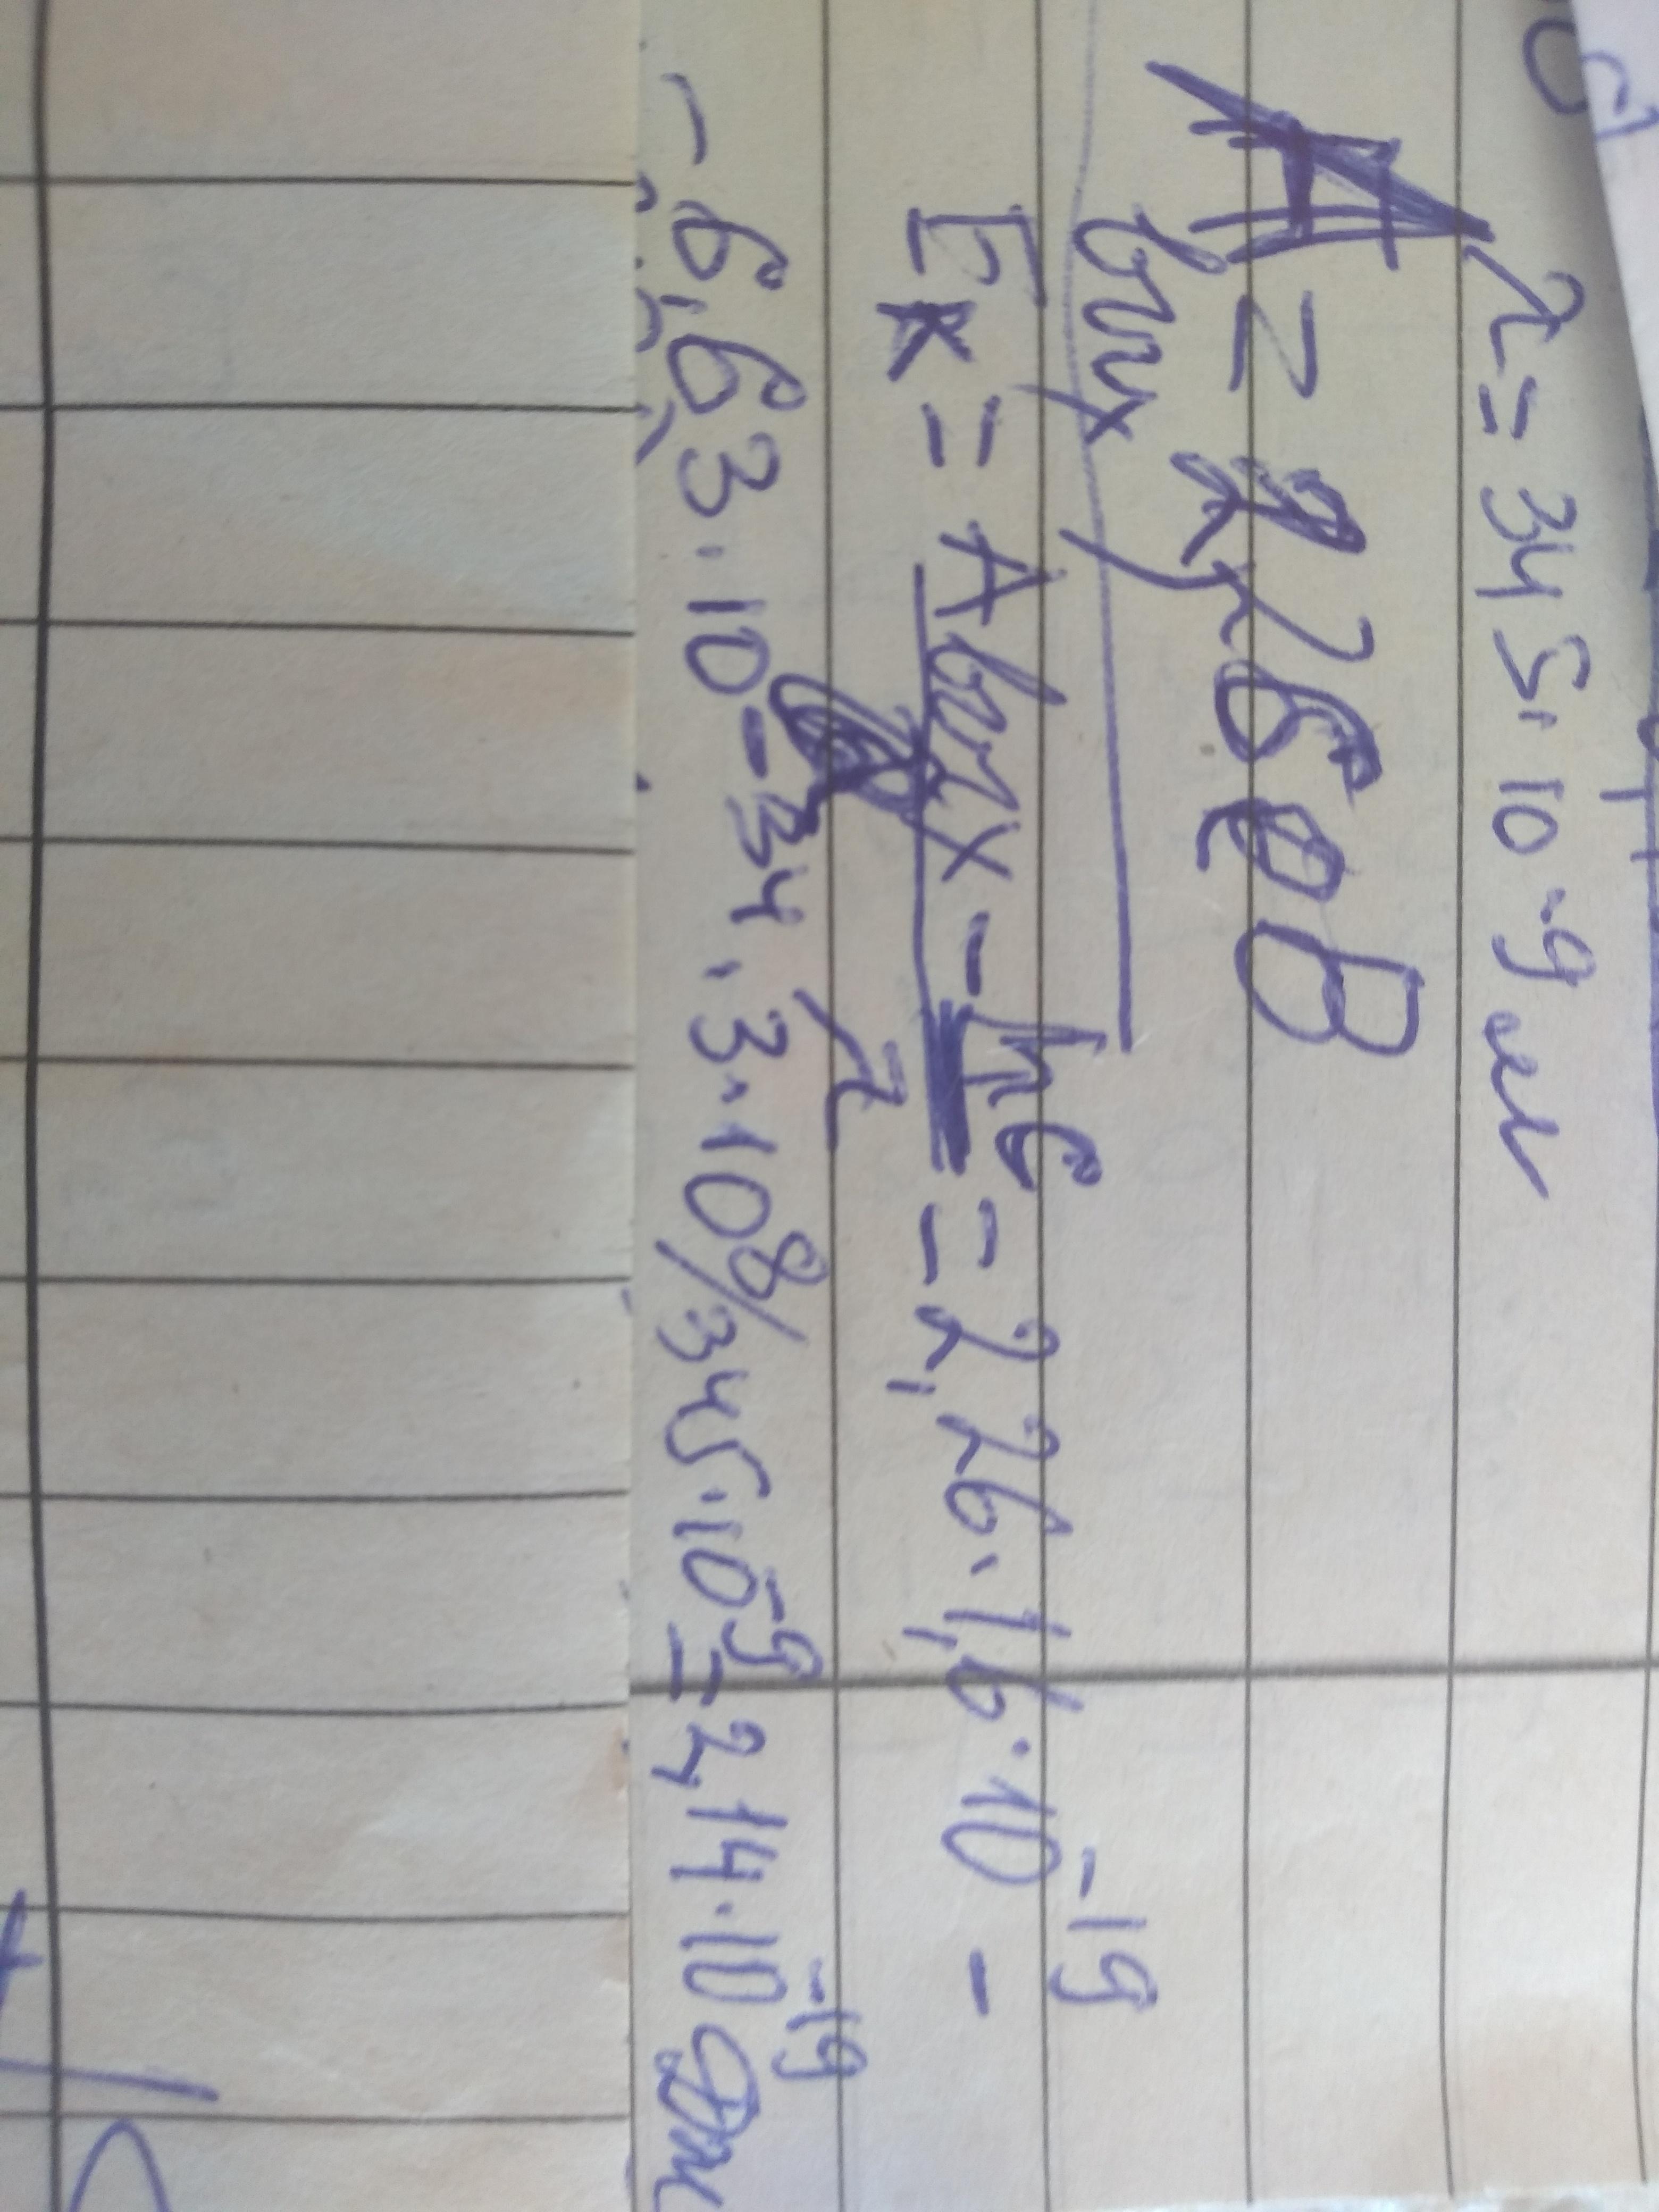 λ = 345·10-9 м
A = 2,26 эВ
вых
Ek = Aвых - hc = 2,26·1,6·10^-19 -
λ
- 6,63·10-34·3·10^8/345·10^-9 = 2,14·10^-19 Дж